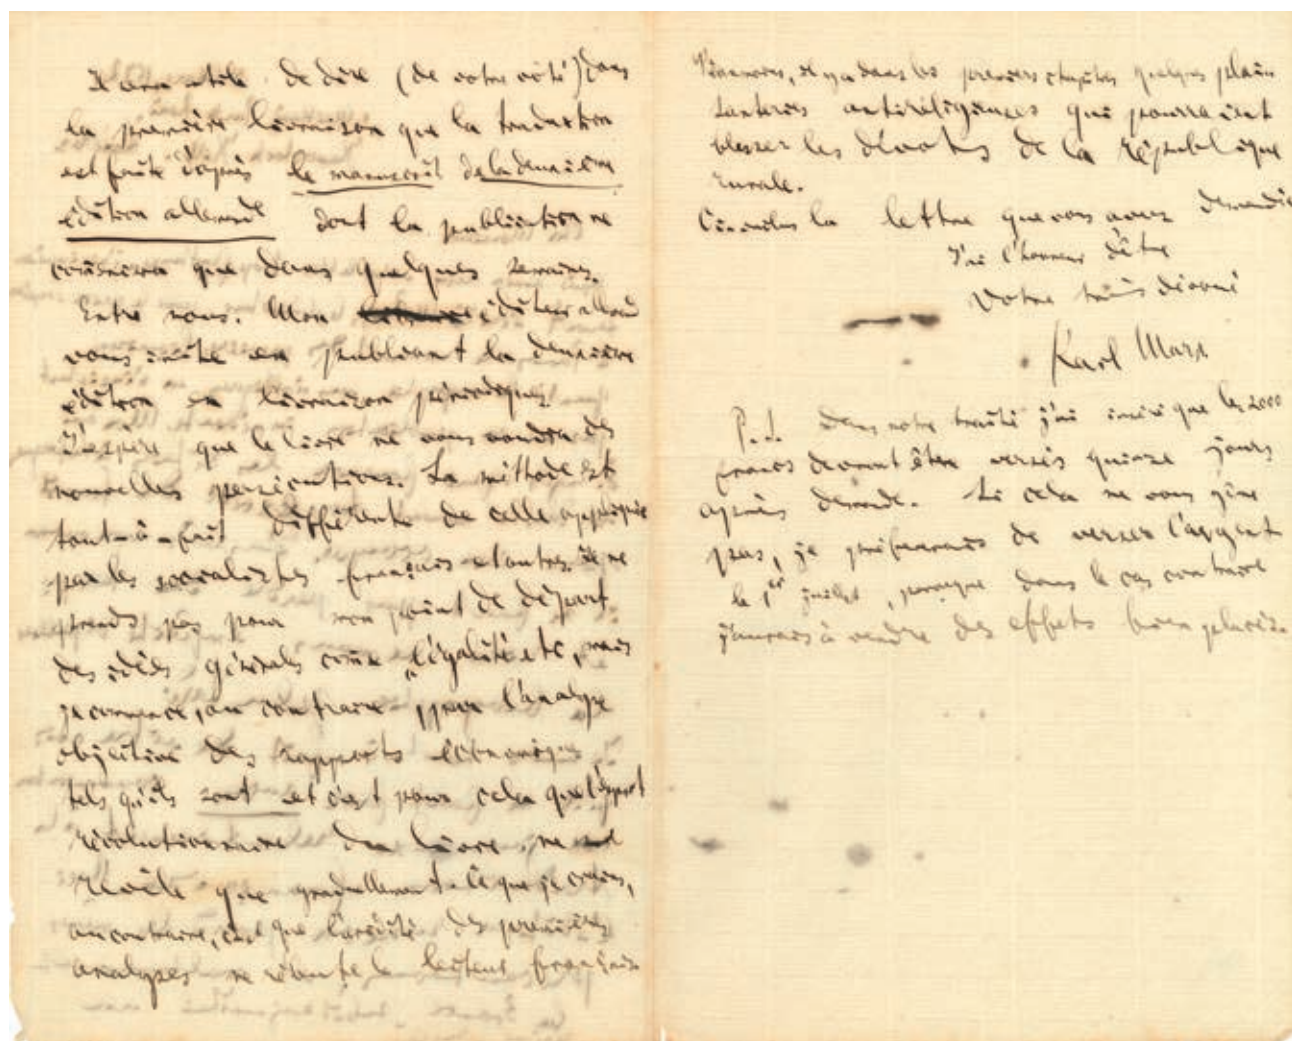 Il sera utile de dire (de votre côté) dans
la première livraison que la traduction
est faite d'après le manuscrit de la deuxième
édition allemande dont la publication ne
commencera que dans quelques semaines.
Entre nous. Mon éditeur allemand
vous imite en publiant la deuxième
édition en livraison périodiques.
J'espère que le livre ne vous vaudra des
nouvelles persécutions. La méthode est
tout-à-fait différente de celle appliquée
par les socialistes français et autres. Je ne
prends pas pour mon point de départ
des idées générales comme l'égalité etc, mais
je commence, au contraire, par l'analyse
objective des rapports économiques
tels qu'ils sont et c'est pour cela que l'esprit
révolutionnaire du livre ne se
révèle que graduellement. Ce que je crains,
au contraire, c'est que l'aridité des premières
analyses ne rebute le lecteur français.
il y a dans les premiers chapitres quelques plai
santeries antireligieuses qui pourraient
blesser les dévots de la république
rurale.
Ci-inclus la lettre que vous avez demandée
J'ai l'honneur d'être
Votre très dévoué
Karl Marx
P.S. dans notre traité j'ai que les 2000
francs devront être versés quinze jours
après demande. Si cela ne vous gêne
pas, je préférerais de verser l'argent
le 1er juillet, parceque dans le cas contraire
j'aurais à vendre des effets bien placés.